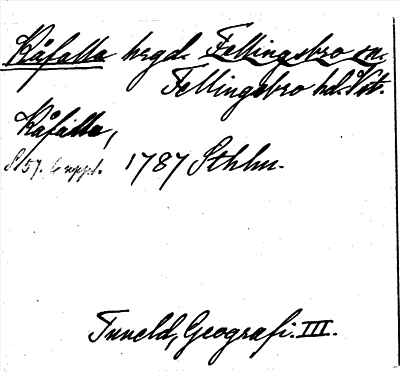 Kåfalla hrgd. Fellingsbro sn.
Fellingsbro hd. Vstm.
Kåfalla,
S. 157. 6 uppl. 1787 Sthlm.
Tuneld, Geografi. III.